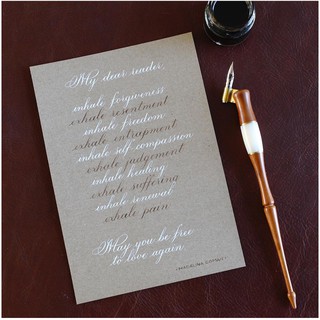 My dear reader,
inhale forgiveness
exhale resentment
inhale freedom
exhale entrapment
inhale self compassion
exhale judgement
inhale healing
exhale suffering
inhale renewal
exhale pain
May you be free
to love again.